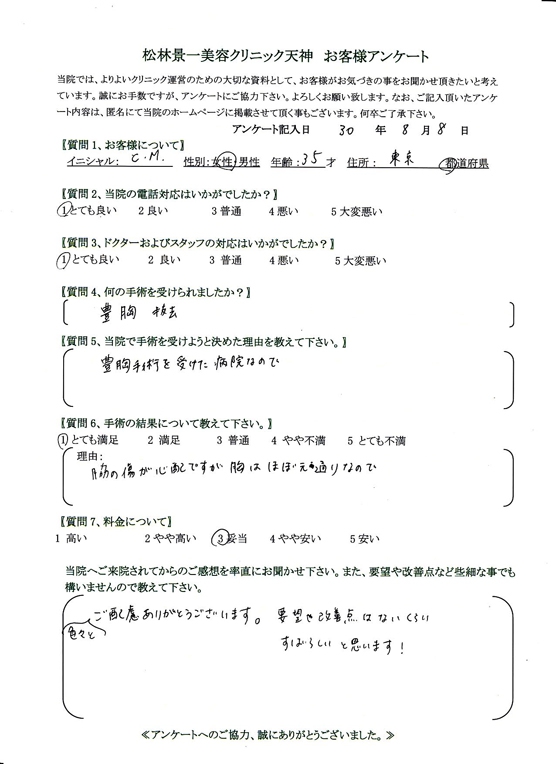 松林景一美容クリニック天神 お客様アンケート
当院では、よりよいクリニック運営のための大切な資料として、お客様がお気づきの事をお聞かせ頂きたいと考え
ています。誠にお手数ですが、アンケートにご協力下さい。よろしくお願い致します。なお、ご記入頂いたアンケ
ート内容は、匿名にて当院のホームページに掲載させて頂く事もございます。何卒ご了承下さい。
アンケート記入日 30 年 8 月 8 日
〖質問1、お客様について〗
イニシャル: C.M. 性別:女性・男性 年齢:35才 住所: 東京 都道府県
〖質問2、当院の電話対応はいかがでしたか?〗
1とても良い 2 良い 3 普通 4 悪い 5 大変悪い
〖質問3、ドクターおよびスタッフの対応はいかがでしたか?〗
1とても良い 2 良い 3 普通 4 悪い 5 大変悪い
〖質問4、何の手術を受けられましたか?〗
豊胸 抜去
〖質問5、当院で手術を受けようと決めた理由を教えて下さい。〗
豊胸手術を受けた病院なので
〖質問6、手術の結果について教えて下さい。〗
1とても満足 2 満足 3 普通 4 やや不満 5 とても不満
理由:
脇の傷が心配ですが胸はほぼ元通りなので
〖質問7、料金について〗
1 高い 2 やや高い 3妥当 4 やや安い 5 安い
当院へご来院されてからのご感想を率直にお聞かせ下さい。また、要望や改善点など些細な事でも
構いませんので教えて下さい。
色々と
ご配慮ありがとうございます。要望や改善点はないくらい
すばらしいと思います!
≪アンケートへのご協力、誠にありがとうございました。≫